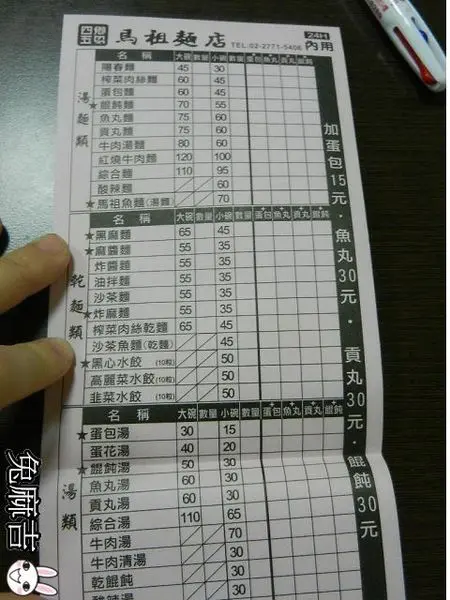 馬祖麵店
TEL:02-2771-5406
24H
內用
湯麵類
名稱 大碗 數量 小碗 數量 蛋包 魚丸 貢丸 餛飩
陽春麵 45 30
榨菜肉絲麵 60 45
蛋包麵 60 45
★餛飩麵 70 55
魚丸麵 75 60
貢丸麵 75 60
牛肉湯麵 80 60
紅燒牛肉麵 120 100
綜合麵 110 95
酸辣麵 60
★馬祖魚麵(湯麵) 70
乾麵類
名稱 大碗 數量 小碗 數量 +蛋包 +魚丸 +貢丸 +餛飩
★黑麻麵 65 45
★麻醬麵 55 35
炸醬麵 55 35
油拌麵 55 35
沙茶麵 55 35
★炸麻麵 55 35
榨菜肉絲乾麵 65 45
沙茶魚麵(乾麵) 45
★黑心水餃(10粒) 50
高麗菜水餃(10粒) 50
韭菜水餃(10粒) 50
湯類
名稱 大碗 數量 小碗 數量 +蛋包 +魚丸 +貢丸 +餛飩
★蛋包湯 30 15
蛋花湯 40 20
★餛飩湯 50 30
魚丸湯 60 30
貢丸湯 60 30
綜合湯 110 65
牛肉湯 70
牛肉清湯 30
乾餛飩 30
酸辣湯 30
加蛋包15元·魚丸30元·貢丸30元·餛飩30元
兔麻吉